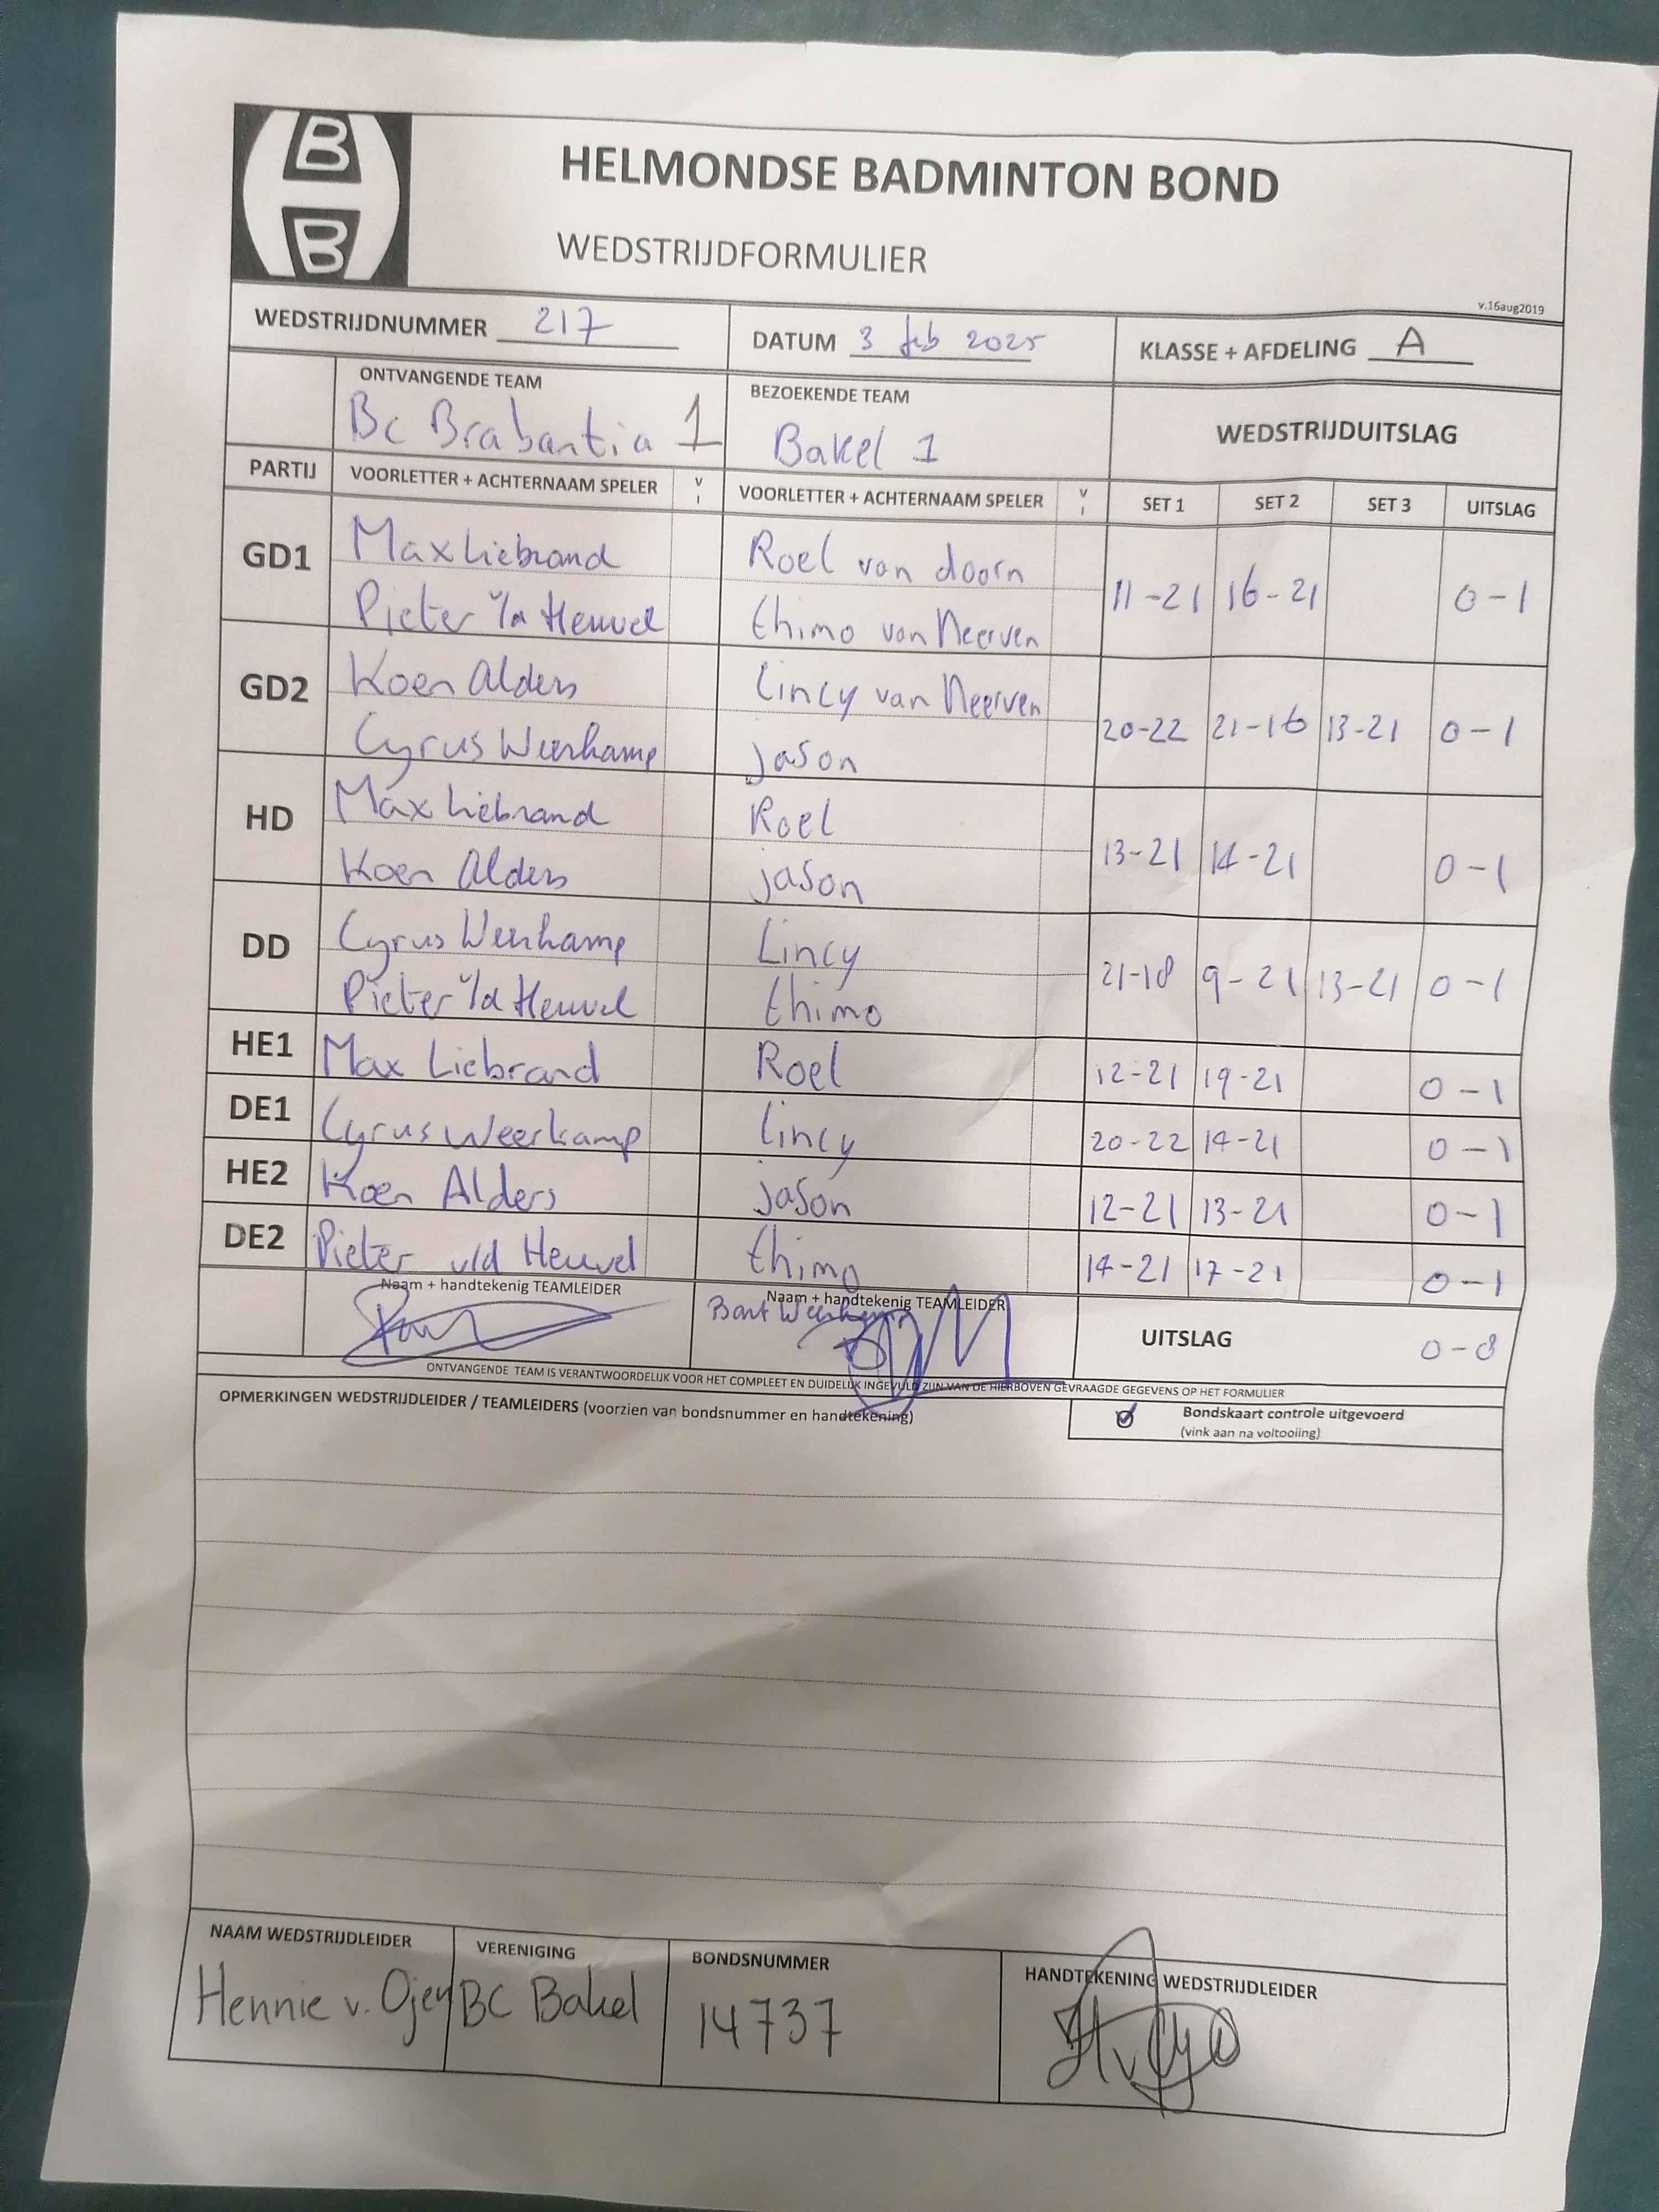 B
B
HELMONDSE BADMINTON BOND
WEDSTRIJDFORMULIER
v.16aug2019
WEDSTRIJDNUMMER 217
DATUM 3 feb 2025
KLASSE + AFDELING A
ONTVANGENDE TEAM
BEZOEKENDE TEAM
Bc Brabantia 1
Bakel 1
WEDSTRIJDUITSLAG
PARTIJ VOORLETTER + ACHTERNAAM SPELER V I VOORLETTER + ACHTERNAAM SPELER V I SET 1 SET 2 SET 3 UITSLAG
GD1 Max Liebrand Roel van doorn 11-21 16-21 0-1
Pieter v/d Heuvel thimo van Neerven
GD2 Koen Alders Lincy van Neerven 20-22 21-16 13-21 0-1
Cyrus Weerkamp jason
HD Max Liebrand Roel 13-21 14-21 0-1
Koen Alders jason
DD Cyrus Weerkamp Lincy 21-18 9-21 13-21 0-1
Pieter v/d Heuvel thimo
HE1 Max Liebrand Roel 12-21 19-21 0-1
DE1 Cyrus Weerkamp Lincy 20-22 14-21 0-1
HE2 Koen Alders jason 12-21 13-21 0-1
DE2 Pieter v/d Heuvel thimo 14-21 17-21 0-1
Naam + handtekenig TEAMLEIDER
Naam + handtekenig TEAMLEIDER
Bart
UITSLAG 0-8
ONTVANGENDE TEAM IS VERANTWOORDELIJK VOOR HET COMPLEET EN DUIDELIJK INGEVULD ZIJN VAN DE HIERBOVEN GEVRAAGDE GEGEVENS OP HET FORMULIER
OPMERKINGEN WEDSTRIJDLEIDER / TEAMLEIDERS (voorzien van bondsnummer en handtekening)
Bondskaart controle uitgevoerd
(vink aan na voltooiing)
NAAM WEDSTRIJDLEIDER VERENIGING BONDSNUMMER HANDTEKENING WEDSTRIJDLEIDER
Hennie v. Ojen BC Bakel 14737